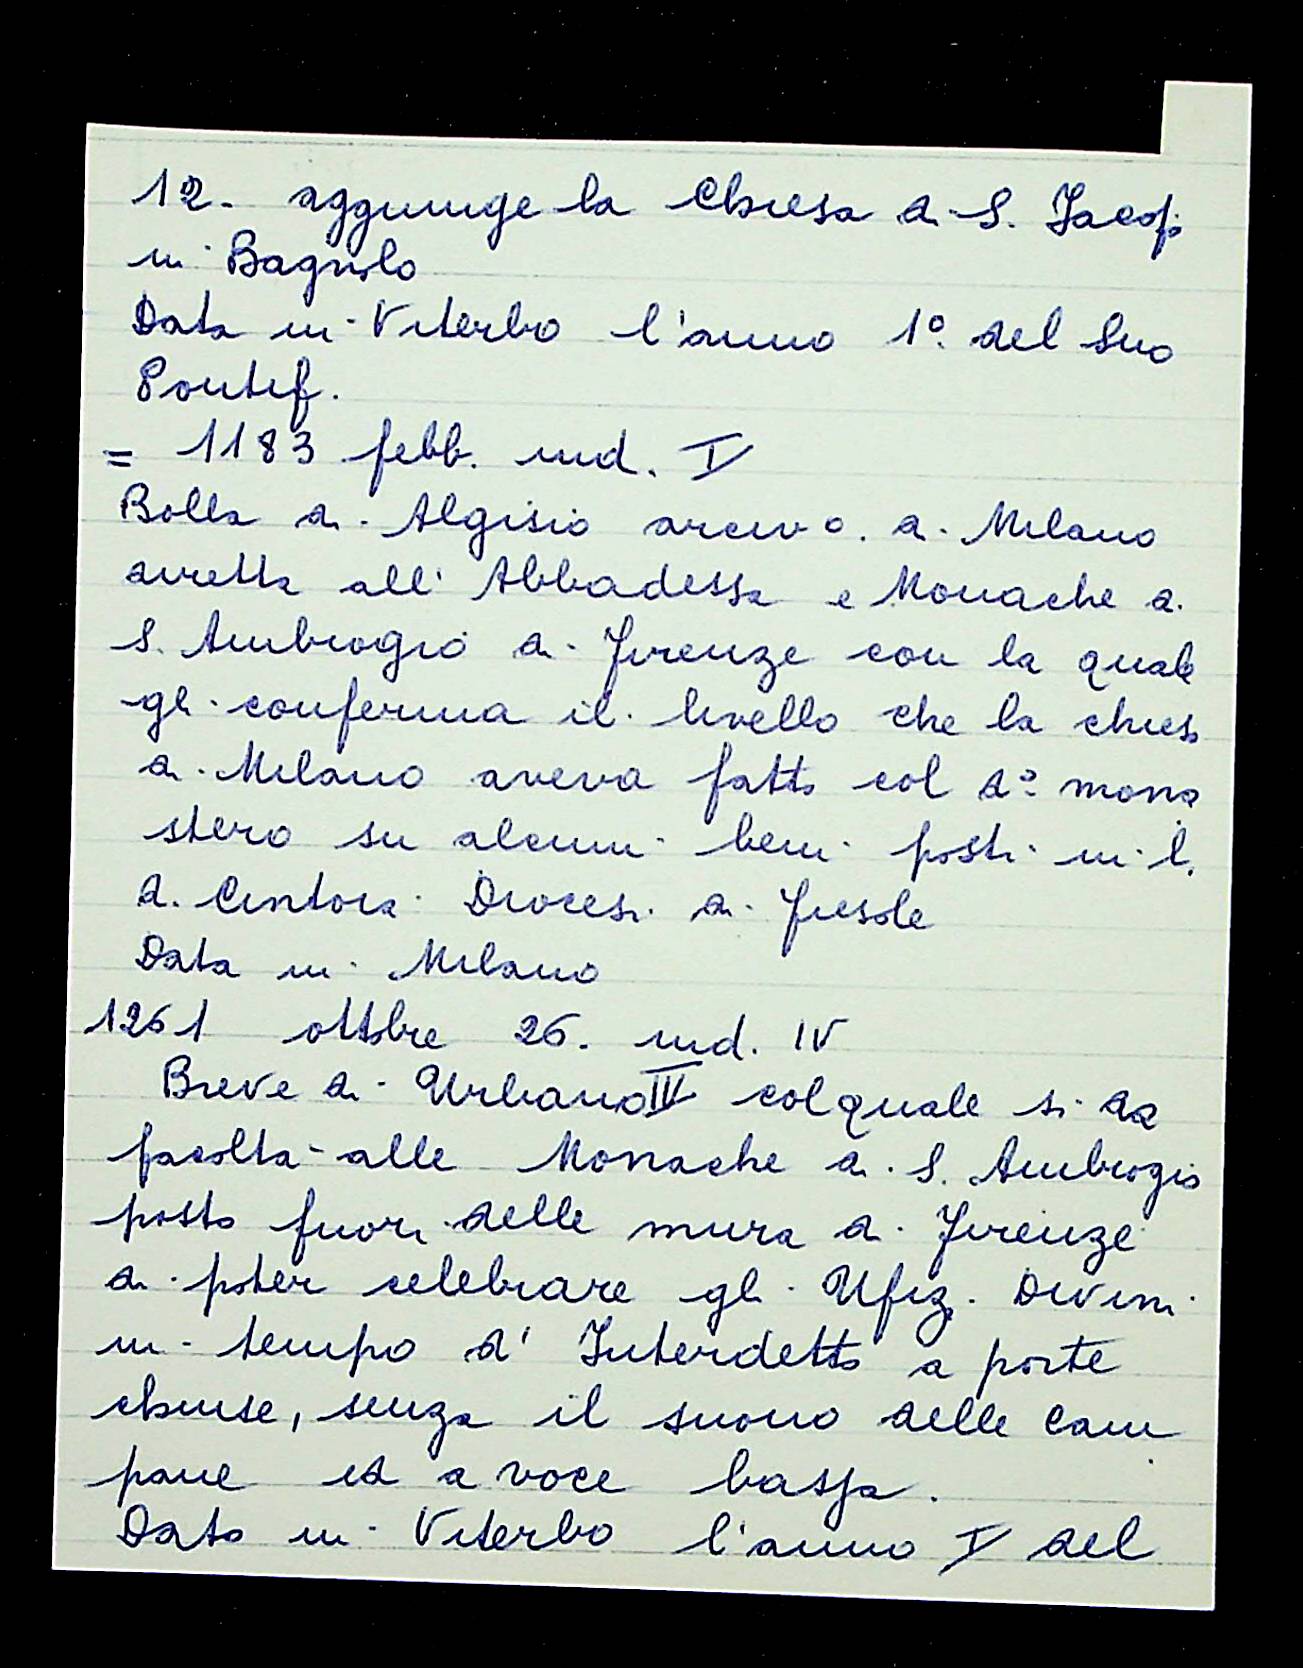 12. aggiunge la Chiesa di S. Jacopo
in Bagnolo
Data in Viterbo l'anno 1º. del Suo
Pontif.
= 1183 febb. ind. I
Bolla di Algisio arcivº. di Milano
diretta all' Abbadessa e Monache di
S. Ambrogio di Firenze con la quale
gli conferma il livello che la chiesa
di Milano aveva fatto col dº mona
stero su alcuni beni posti in l.
d. Cintoia Diocesi di Fiesole
Data in Milano
1261 ottobre 26. ind. IV
Breve di Urbano IV col quale si da
facolta alle Monache di S. Ambrogio
posto fuori delle mura di Firenze
di poter celebrare gli Ufiz. Divini
in tempo d' Interdetto a porte
chiuse, senza il suono delle Cam
pane ed a voce bassa.
Dato in Viterbo l'anno I del